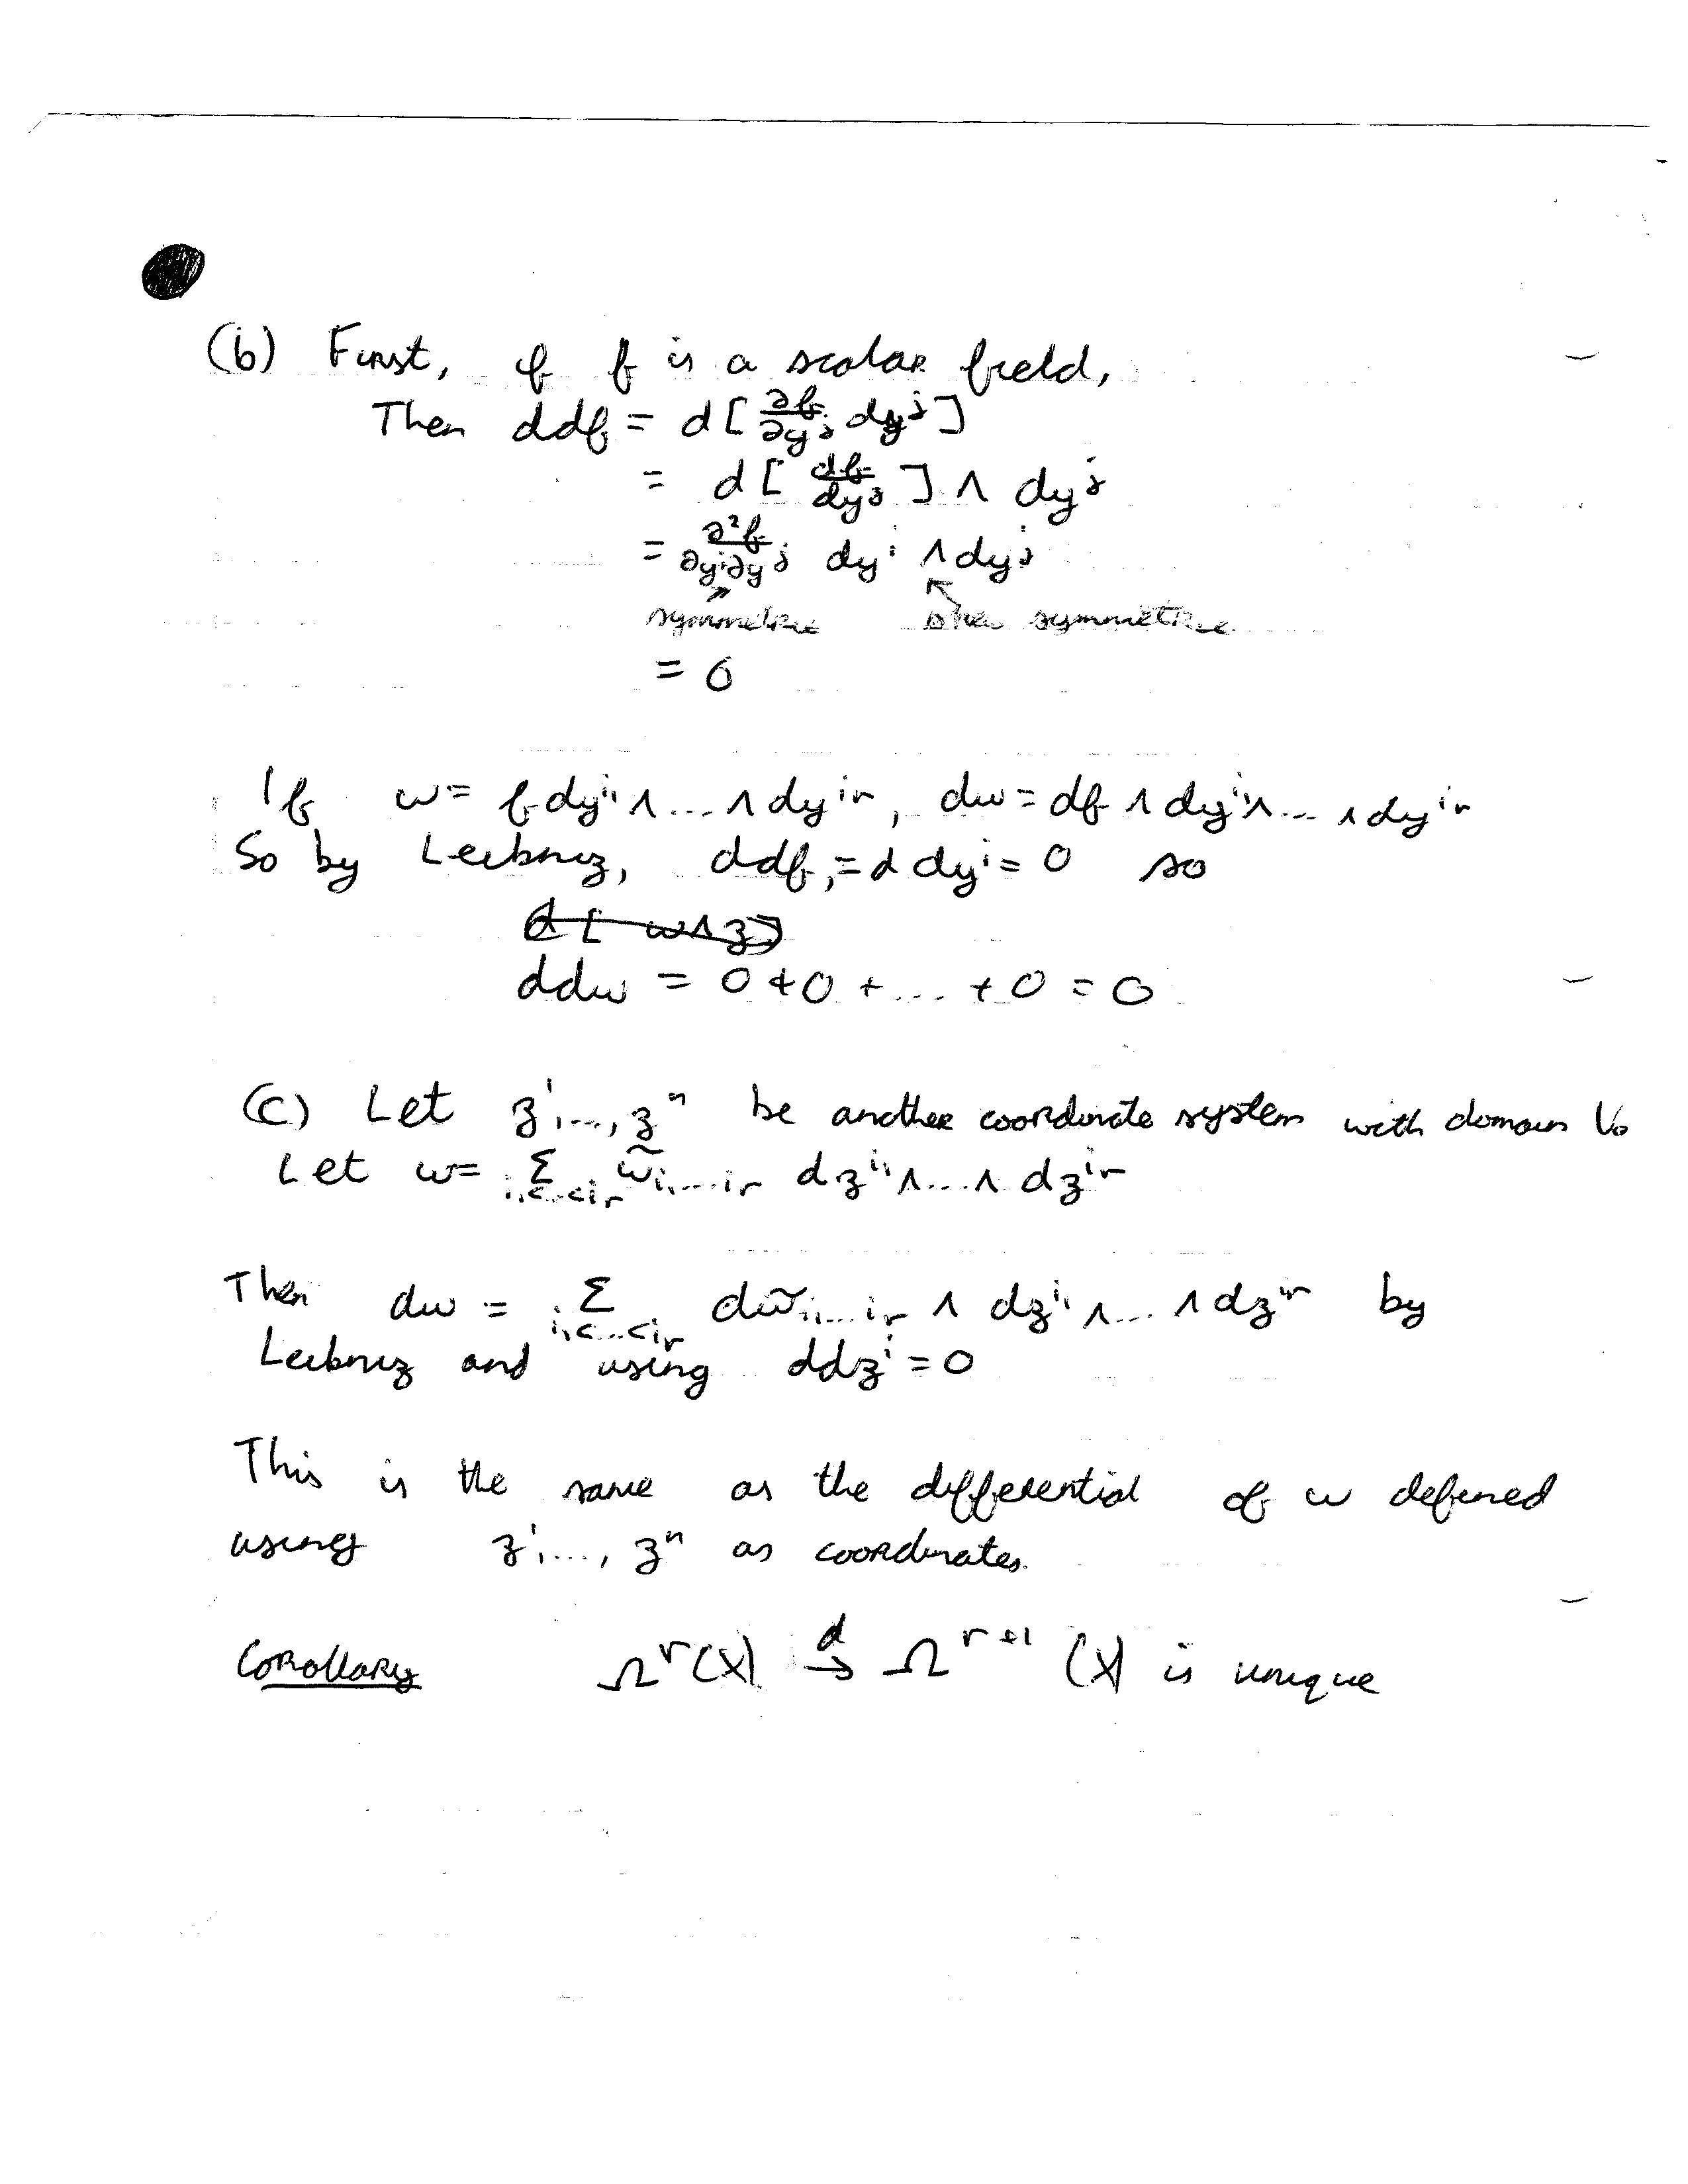 (b) First, if f is a scalar field,
Then ddf = d[∂f/∂yʲ dyʲ]
= d[df/dyʲ] ∧ dyʲ
= ∂²f/∂yⁱ∂yʲ dyⁱ ∧ dyʲ
symmetric skew symmetric
= 0
If ω = f dyⁱ¹ ∧ ... ∧ dyⁱʳ, dω = df ∧ dyⁱ¹ ∧ ... ∧ dyⁱʳ
So by Leibniz, ddf, = d dyⁱ = 0 so
d[ω∧z]
ddω = 0 + 0 + ... + 0 = 0
(c) Let z¹,..., zⁿ be another coordinate system with domain V.
Let ω = Σ i₁<...<iᵣ ω̃ i₁...iᵣ dzⁱ¹ ∧ ... ∧ dzⁱʳ
Then dω = Σ i₁<...<iᵣ dω̃ i₁...iᵣ ∧ dzⁱ¹ ∧ ... ∧ dzⁱʳ by
Leibniz and using ddzⁱ = 0
This is the same as the differential of ω defined
using z¹,..., zⁿ as coordinates.
Corollary Ωʳ(X) →ᵈ Ωʳ⁺¹(X) is unique